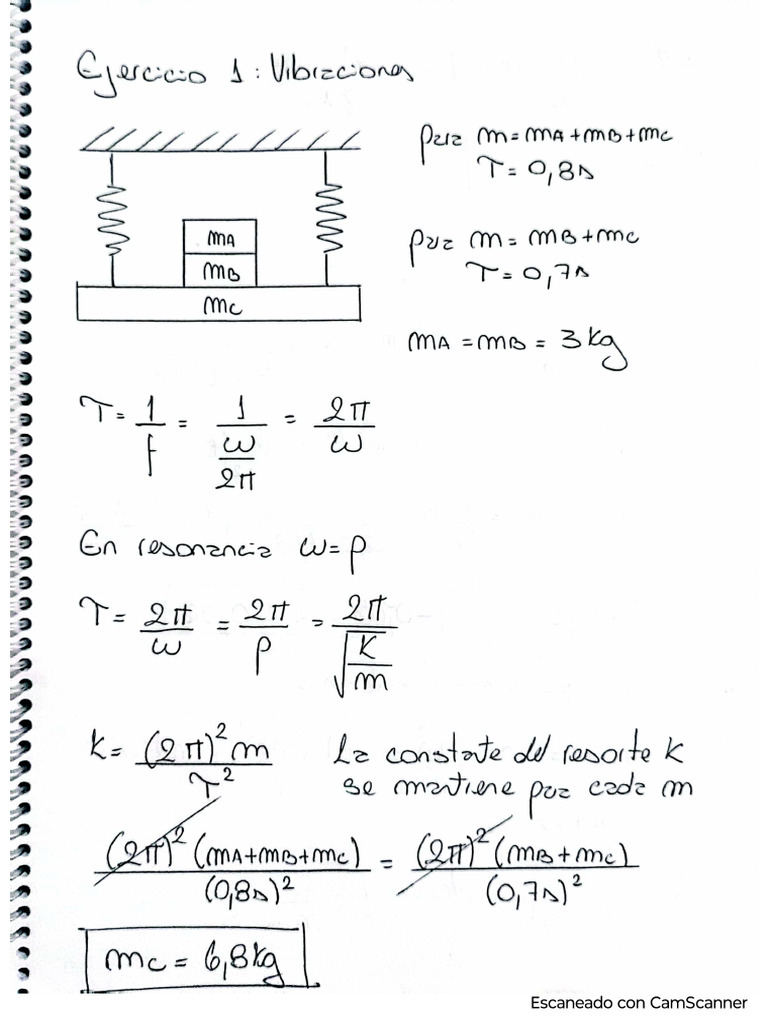 Ejercicio 1: Vibraciones
para m = mA + mB + mC
T = 0,8s
para m = mB + mC
T = 0,7s
mA = mB = 3kg
mA
mB
mC
T = 1/f = 1/(ω/2π) = 2π/ω
En resonancia ω = p
T = 2π/ω = 2π/p = 2π/√(K/m)
K = (2π)² m / T²
La constate del resorte K
se mantiene par cada m
(2π)² (mA+mB+mC) / (0,8s)² = (2π)² (mB+mC) / (0,7s)²
mC = 6,8kg
Escaneado con CamScanner